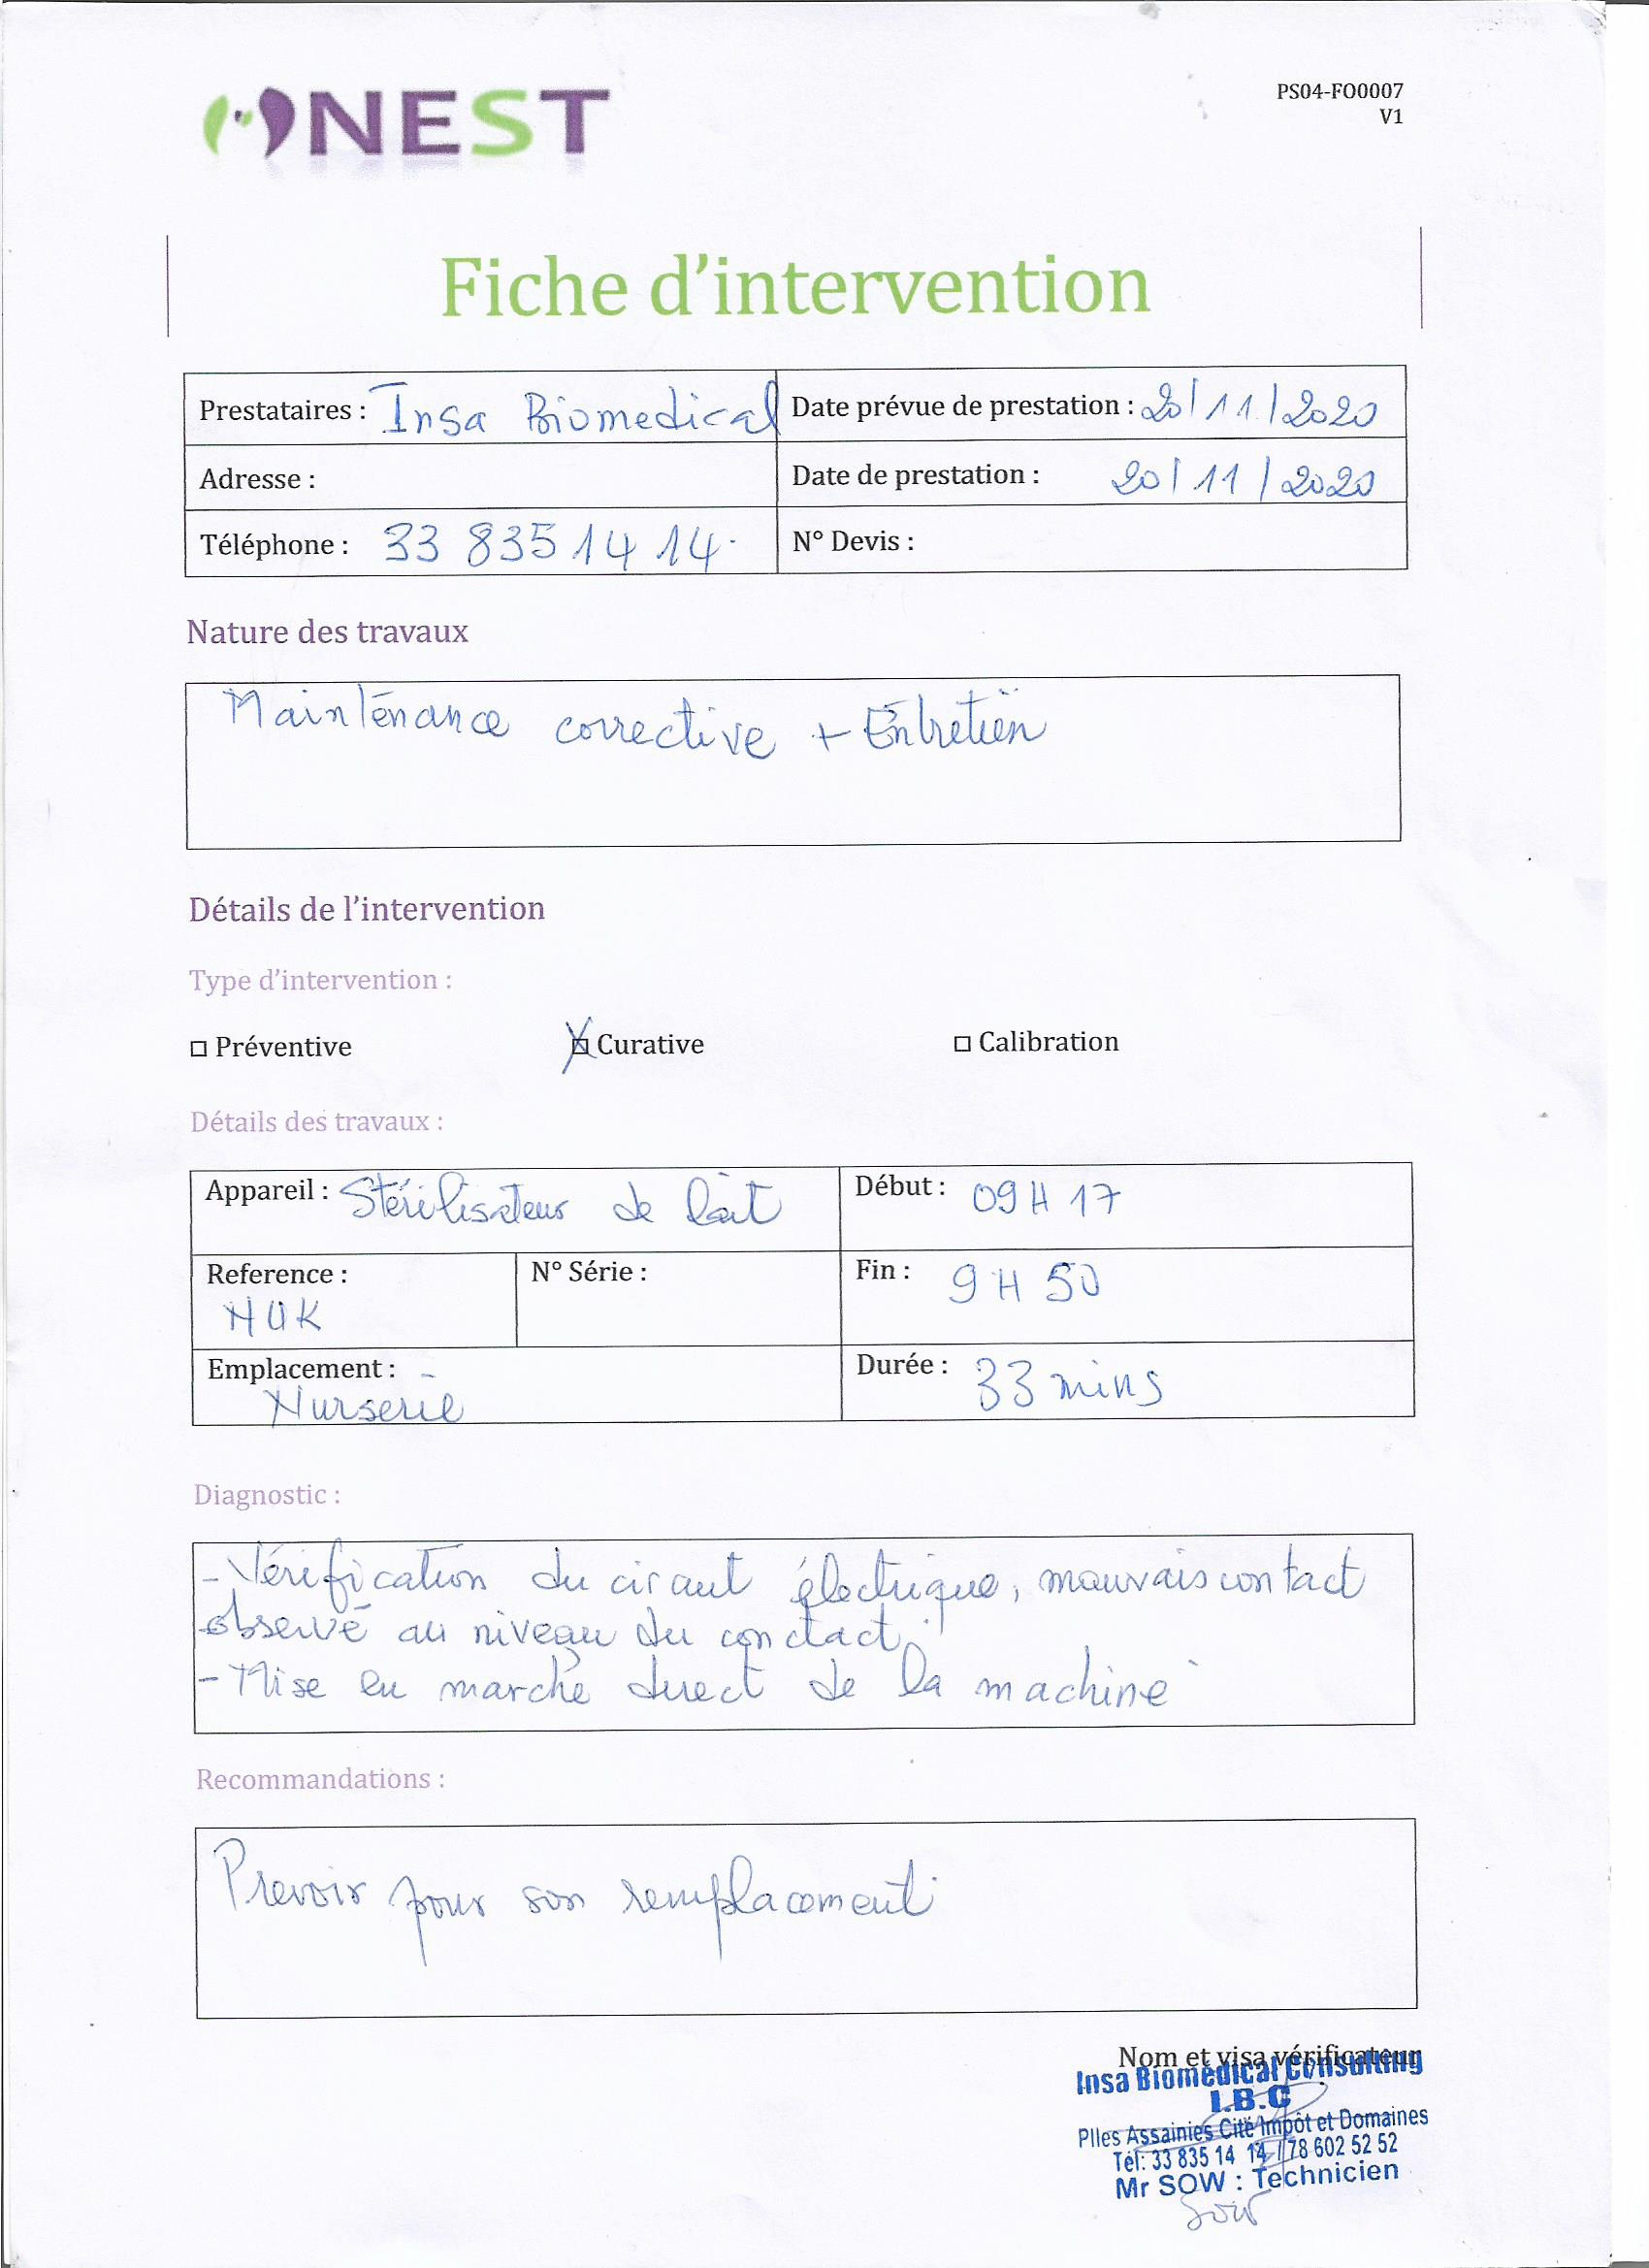 NEST
PS04-FO0007
V1
Fiche d'intervention
Prestataires : Insa Biomedical
Date prévue de prestation : 20/11/2020
Adresse :
Date de prestation : 20/11/2020
Téléphone : 33 835 14 14
N° Devis :
Nature des travaux
Maintenance corrective + Entretien
Détails de l'intervention
Type d'intervention :
□ Préventive
☒ Curative
□ Calibration
Détails des travaux :
Appareil : Stérilisateur de lait
Début : 09H 17
Reference :
NUK
N° Série :
Fin : 9H 50
Emplacement :
Nurserie
Durée : 33 mins
Diagnostic :
- Vérification du circuit électrique, mauvais contact
observé au niveau du contact.
- Mise en marche direct de la machine
Recommandations :
Prevoir pour son remplacement
Nom et visa vérificateur
Insa Biomédical Consulting
I.B.C
Plles Assainies Cité Impôt et Domaines
Tél: 33 835 14 14 / 78 602 52 52
Mr SOW : Technicien
Sow